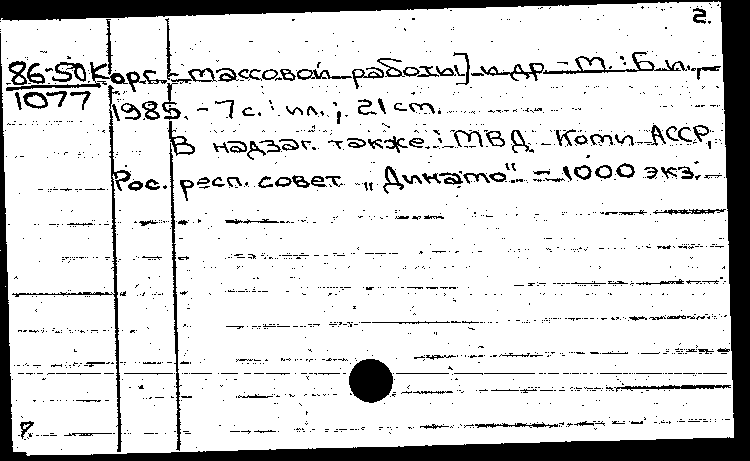 2.
86-50К орг.-массовой работы] и др. - М. : Б.и.,
1077
1985. - 7 с. : ил. ; 21 cm.
В надзаг. также: МВД Коми АССР,
Рос. респ. совет „Динамо“. - 1000 экз.